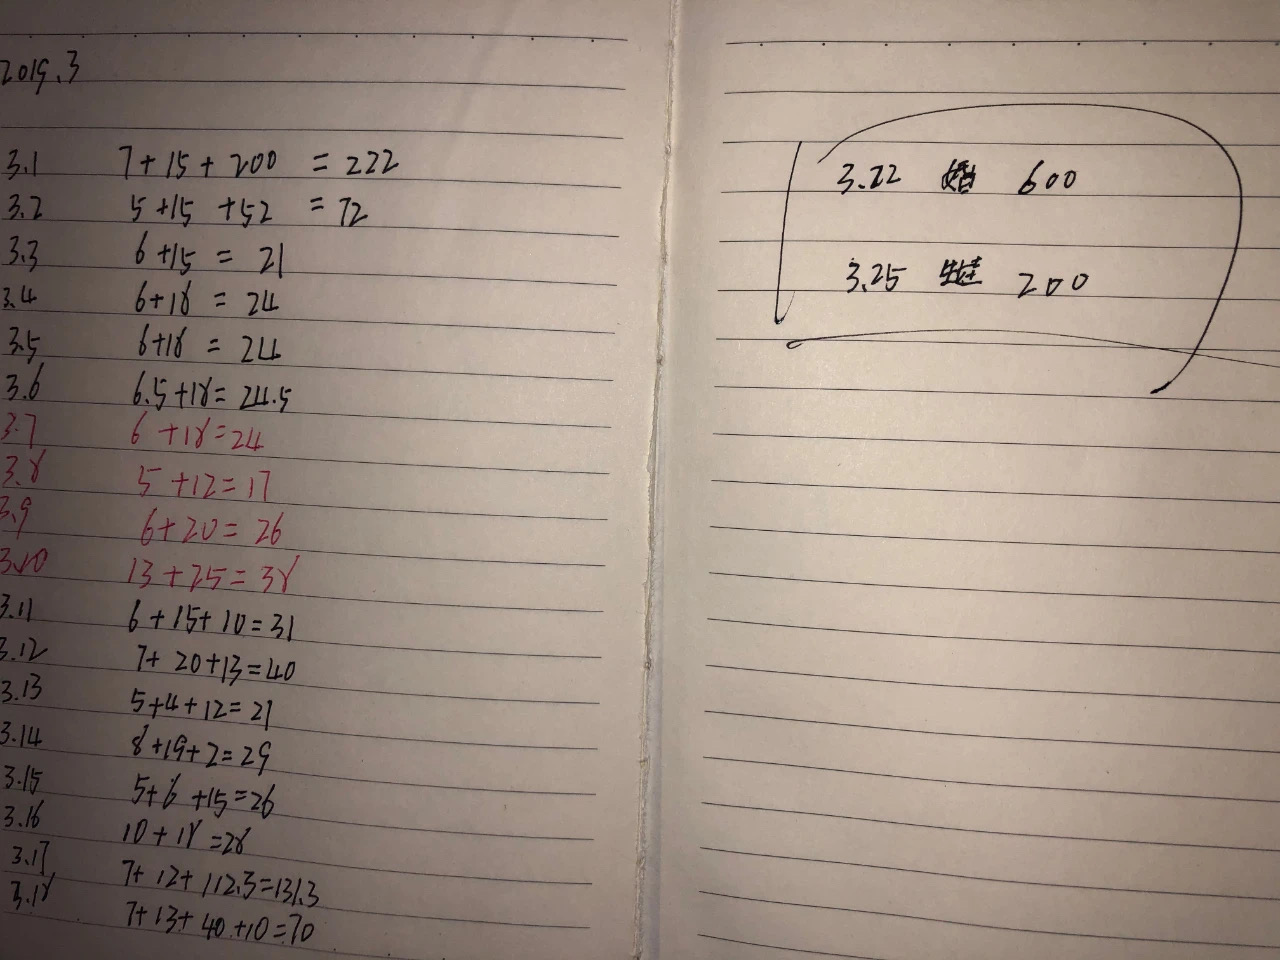 2019.3
3.1 7+15+200 = 222
3.2 5+15+52 = 72
3.3 6+15 = 21
3.4 6+18 = 24
3.5 6+18 = 24
3.6 6.5+18=24.5
3.7 6+18=24
3.8 5+12=17
3.9 6+20=26
3.10 13+25=38
3.11 6+15+10=31
3.12 7+20+13=40
3.13 5+4+12=21
3.14 8+19+2=29
3.15 5+6+15=26
3.16 10+18=28
3.17 7+12+112.3=131.3
3.18 7+13+40+10=70
3.22 婚 600
3.25 200